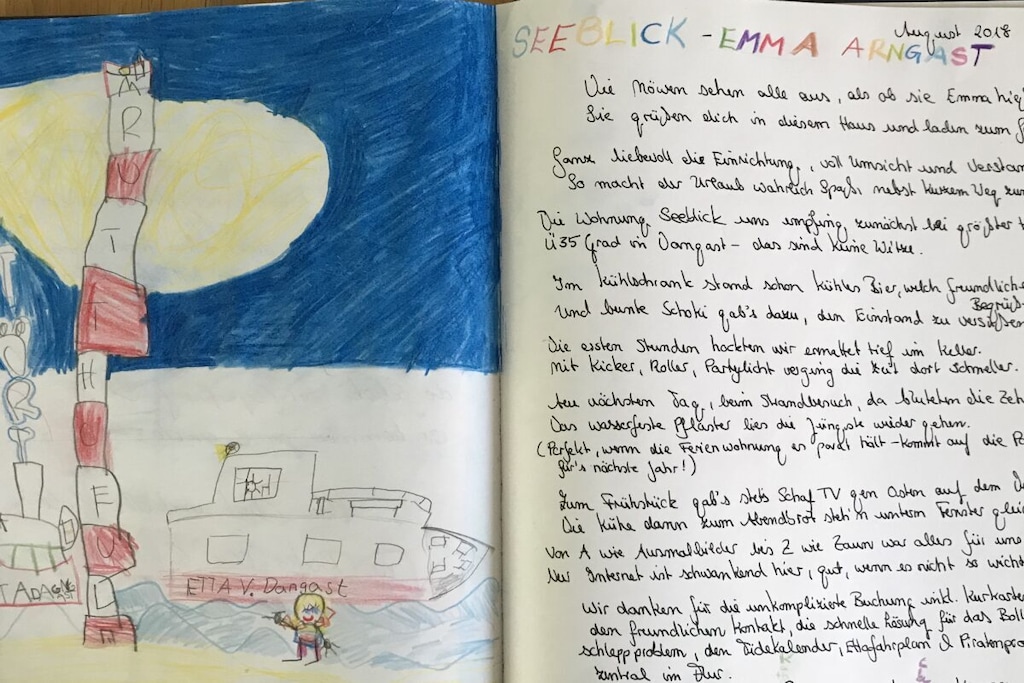 ARTTHUED
ETTA V. Dangast
SEEBLICK - EMMA ARNGAST
August 2018
Die Möwen sehen alle aus, als ob sie Emma
Sie grüßen dich in diesem Haus und laden zum
Ganz liebevoll die Einrichtung, voll Umsicht und
So macht der Urlaub wahrlich Spaß nebst kurzem Weg
Die Wohnung Seeblick uns empfing zunächst bei größter
Ü35 Grad in Dangast - das sind keine Witze.
Im Kühlschrank stand schon kühles Bier, welch freundlich
Begrüß
und bunte Schoki gab's dazu, den Einstand zu versüßen
Die ersten Stunden hockten wir ermattet tief im Keller.
Mit Kicker, Roller, Partylicht verging die Zeit dort schneller.
Am nächsten Tag, beim Strandbesuch, da bluteten die
Das wasserfeste Pflaster lies die Jüngste wieder gehen.
(Perfekt, wenn die Ferienwohnung es parat hält - kommt auf die
für's nächste Jahr!)
Zum Frühstück gab's stets Schaf TV gen Osten auf dem
Die Kühe dann zum Abendbrot steh'n unterm Fenster
Von A wie Ausmalbilder bis Z wie Zaun war alles für uns
Nur Internet ist schwankend hier, gut, wenn es nicht so
Wir danken für die unkomplizierte Buchung inkl. Kurkarte
den freundlichen Kontakt, die schnelle Lösung für das
schleppproblem, den Tidekalender, Ettafahrplan &
zentral im Flur.